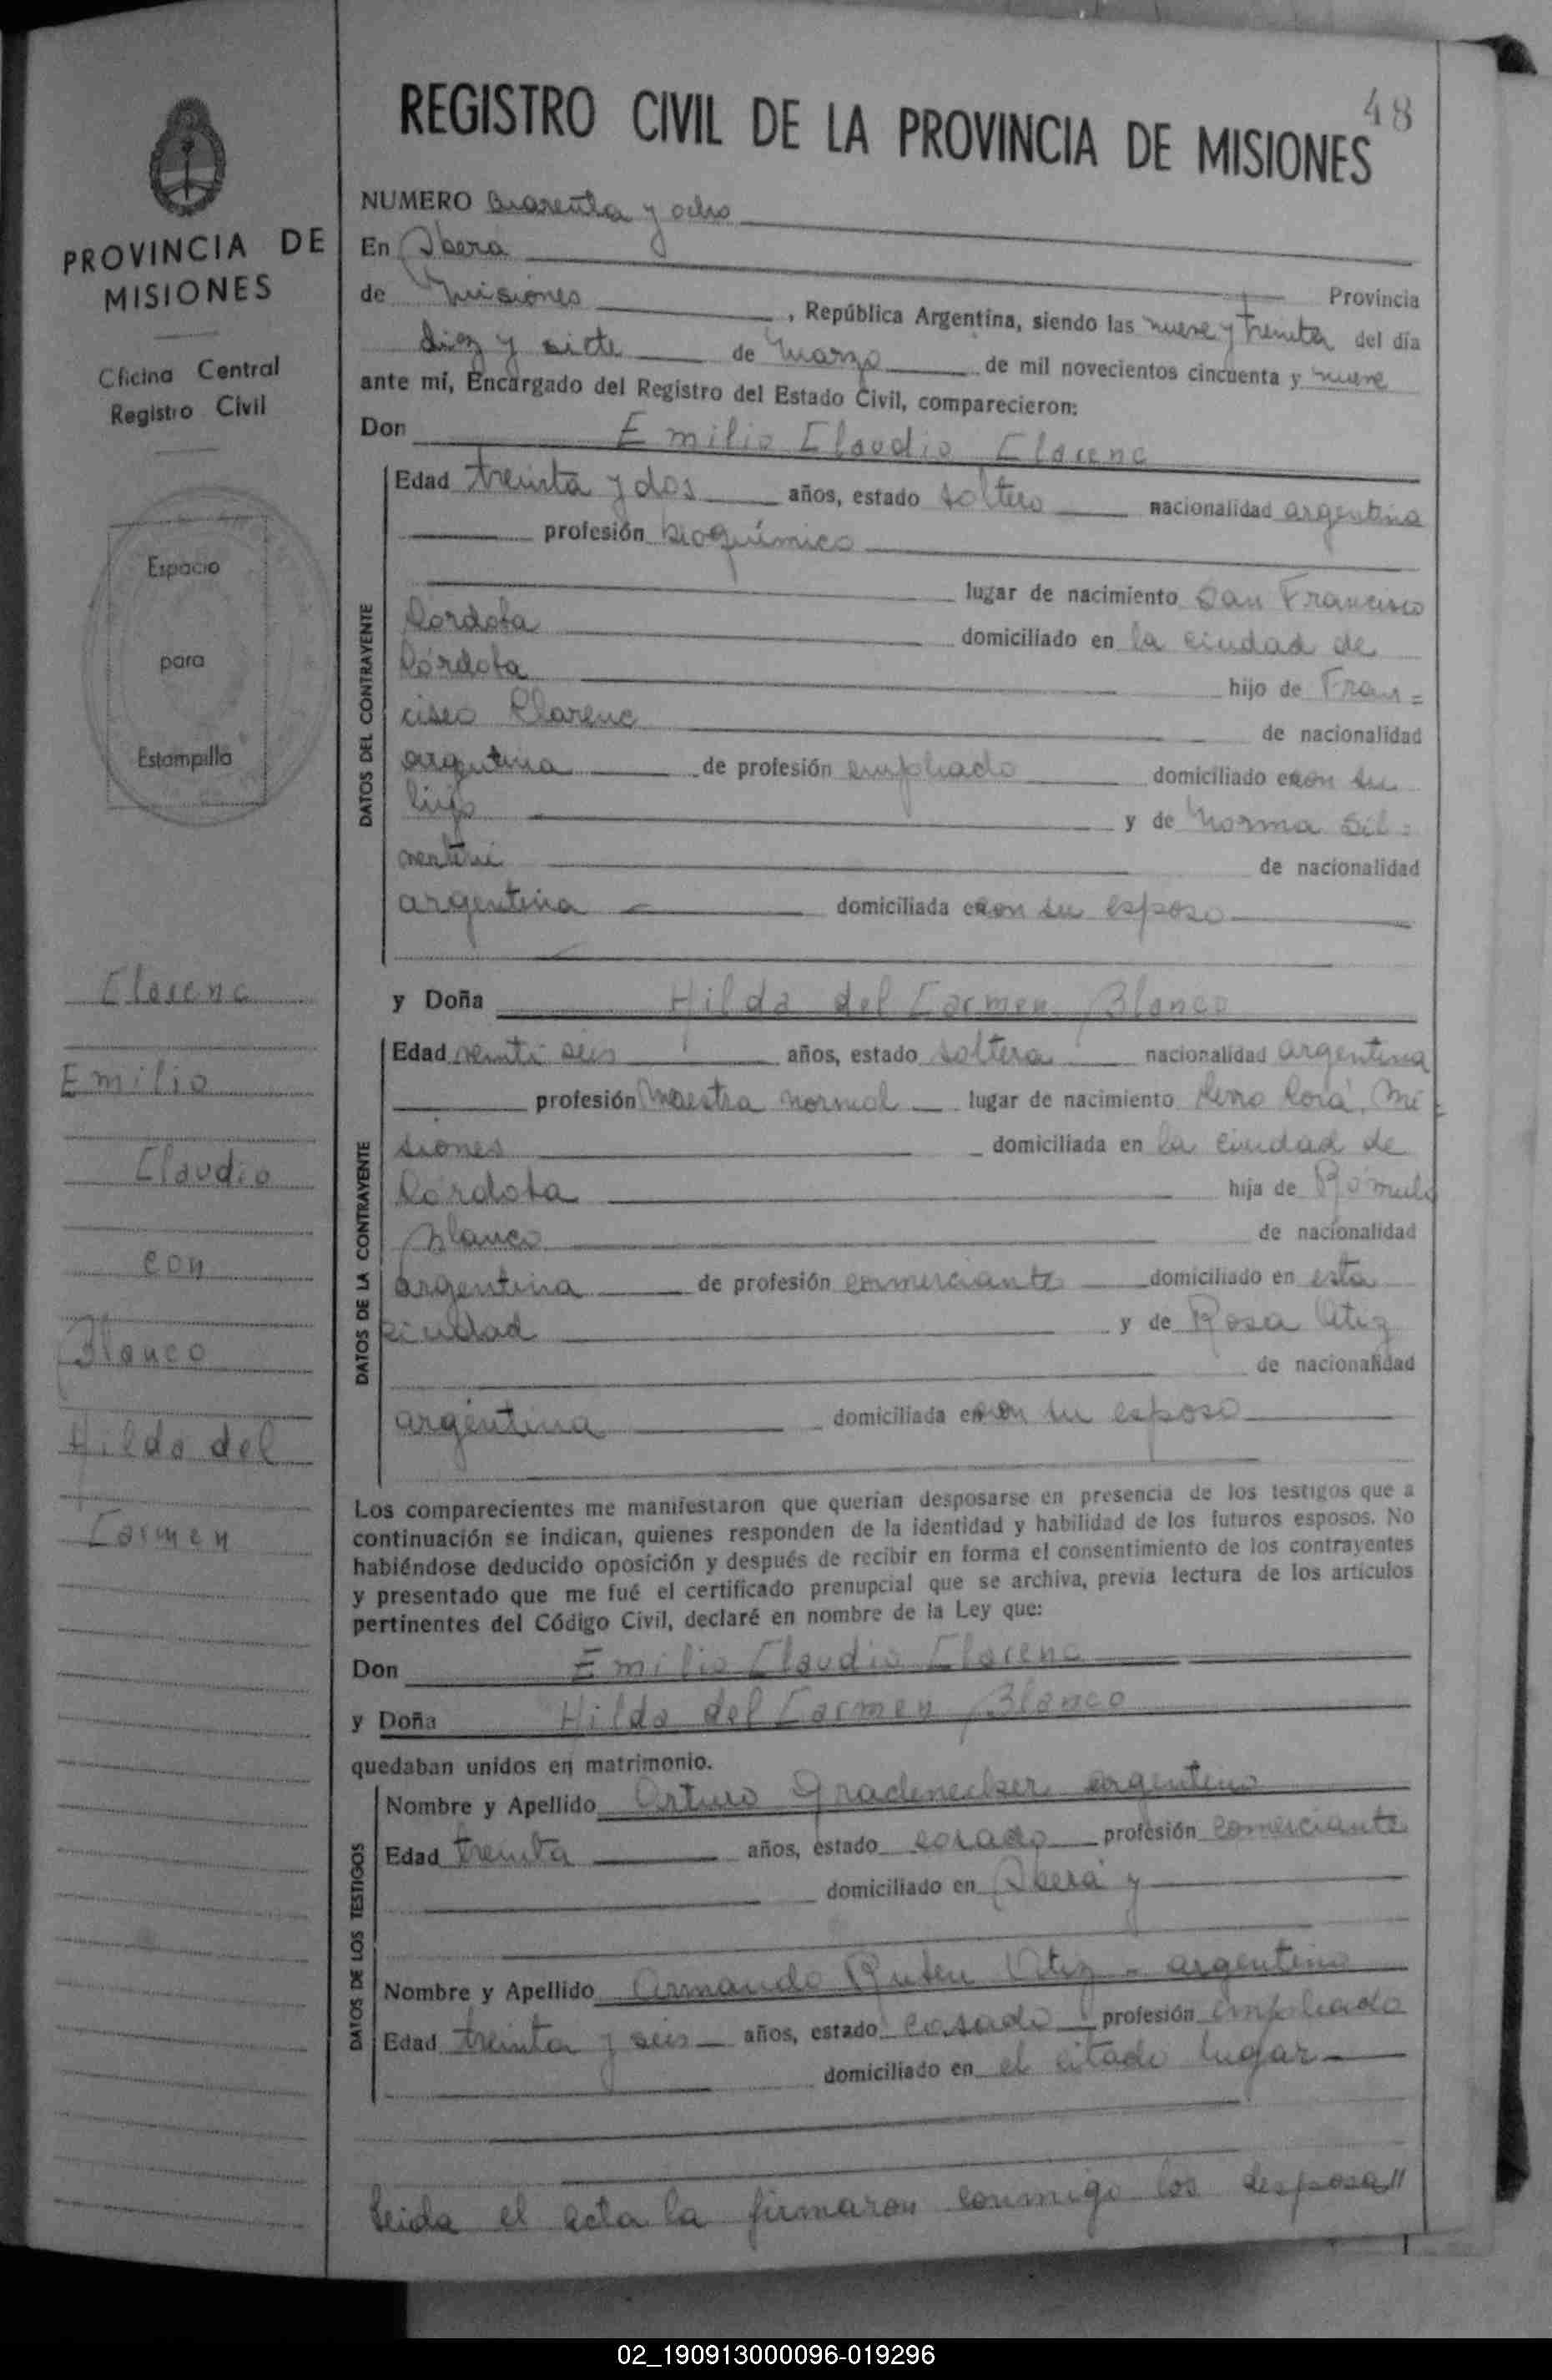 48
REGISTRO CIVIL DE LA PROVINCIA DE MISIONES
PROVINCIA DE
MISIONES
Oficina Central
Registro Civil
Espacio
para
Estampilla
Clarenc
Emilio
Claudio
con
Blanco
Hilda del
Carmen
NUMERO cuarenta y ocho
En Oberá
Provincia
de Misiones, República Argentina, siendo las nueve y treinta del día
diez y siete de Marzo de mil novecientos cincuenta y nueve
ante mí, Encargado del Registro del Estado Civil, comparecieron:
Don Emilio Claudio Clarenc
DATOS DEL CONTRAYENTE
Edad treinta y dos años, estado soltero nacionalidad argentina
profesión bioquímico
lugar de nacimiento San Francisco
Córdoba domiciliado en la ciudad de
Córdoba hijo de Fran=
cisco Clarenc de nacionalidad
argentina de profesión empleado domiciliado con su
hijo y de Norma Sil=
vestri de nacionalidad
argentina domiciliada con su esposo
y Doña Hilda del Carmen Blanco
DATOS DE LA CONTRAYENTE
Edad veinti seis años, estado soltera nacionalidad argentina
profesión Maestra normal lugar de nacimiento Cerro Corá, Mi=
siones domiciliada en la ciudad de
Córdoba hija de Rómulo
Blanco de nacionalidad
argentina de profesión comerciante domiciliado en esta
ciudad y de Rosa
de nacionalidad
argentina domiciliada con su esposo
Los comparecientes me manifestaron que querían desposarse en presencia de los testigos que a
continuación se indican, quienes responden de la identidad y habilidad de los futuros esposos. No
habiéndose deducido oposición y después de recibir en forma el consentimiento de los contrayentes
y presentado que me fué el certificado prenupcial que se archiva, previa lectura de los artículos
pertinentes del Código Civil, declaré en nombre de la Ley que:
Don Emilio Claudio Clarenc
y Doña Hilda del Carmen Blanco
quedaban unidos en matrimonio.
DATOS DE LOS TESTIGOS
Nombre y Apellido Arturo Gradenecker argentino
Edad treinta años, estado casado profesión comerciante
domiciliado en Oberá y
Nombre y Apellido Armando Ruben - argentino
Edad treinta y seis años, estado casado profesión empleado
domiciliado en el citado lugar
Leida el acta la firmaron conmigo los desposa"
02_190913000096-019296